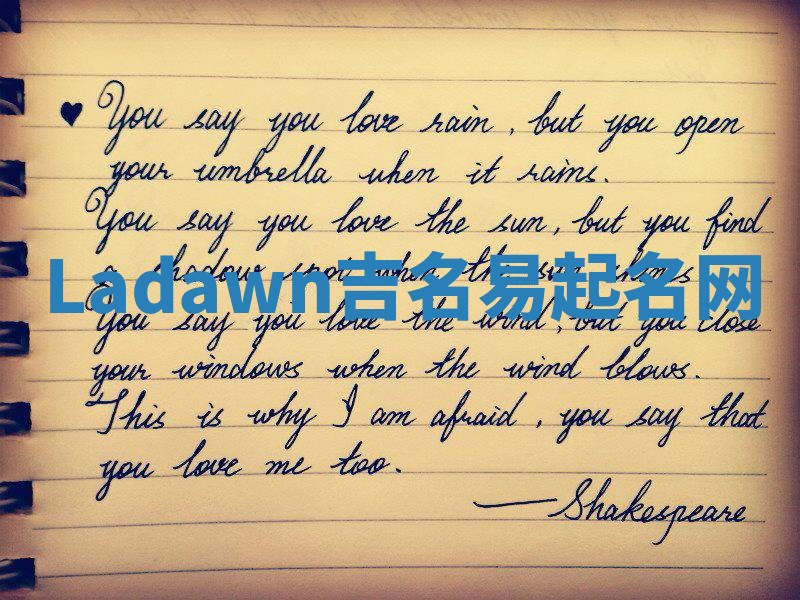 You say you love rain, but you open
your umbrella when it rains.
You say you love the sun, but you find
a shadow spot when the sun shines
Ladawn吉名易起名网
You say you love the wind, but you close
your windows when the wind blows.
This is why I am afraid, you say that
you love me too.
—Shakespeare